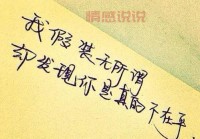 情感说说
我假装无所谓
却发现你是真的不在乎